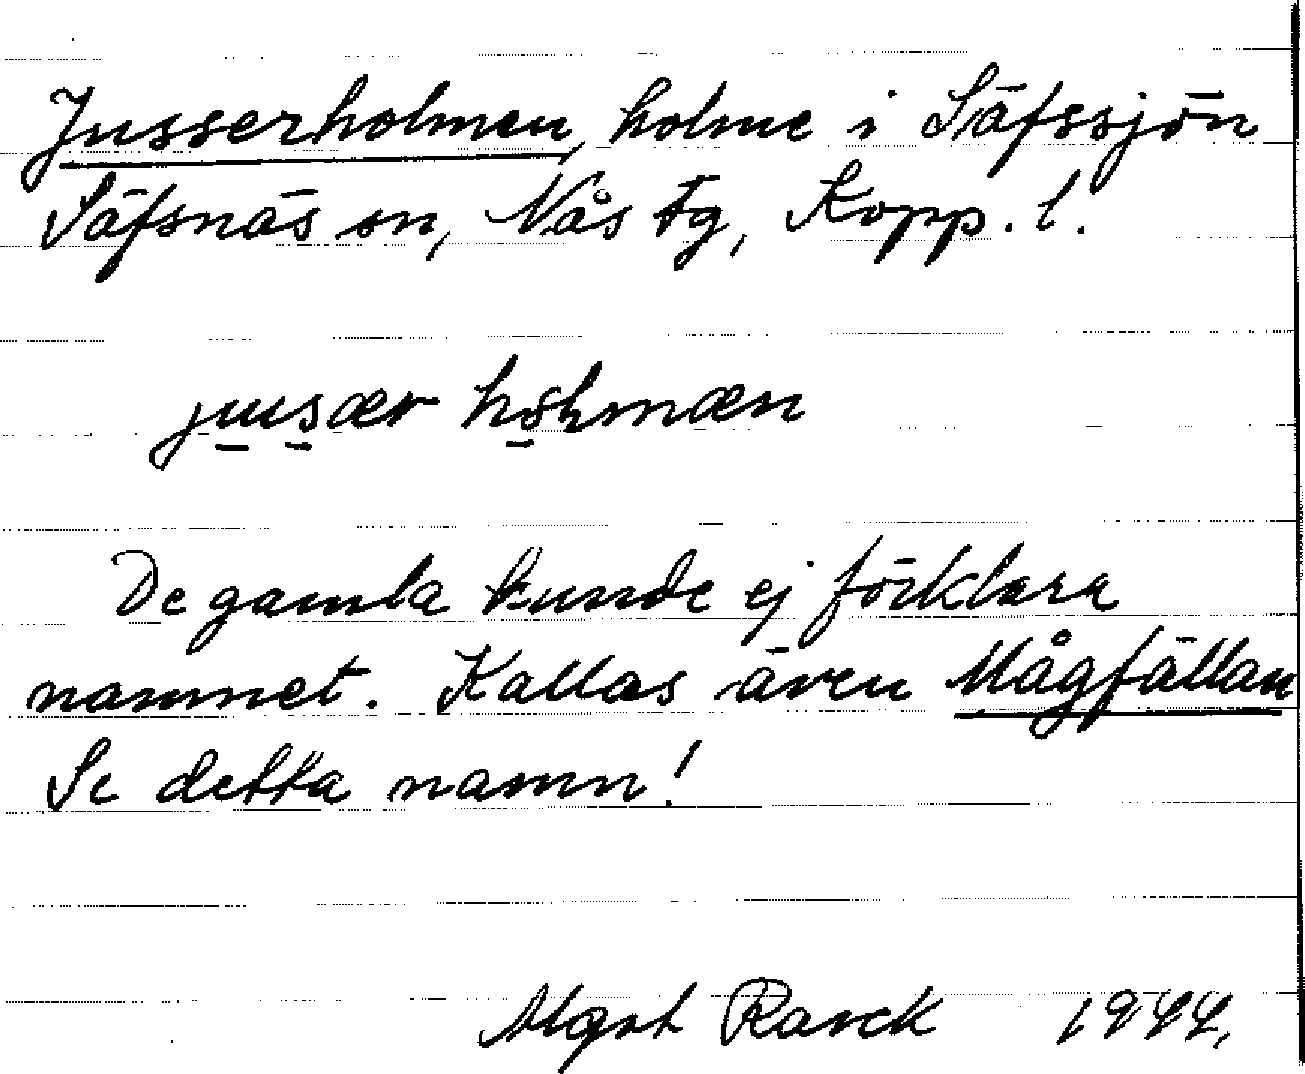 Jusserholmen, holme i Säfssjön
Säfsnäs sn, Nås tg, Kopp. l.
De gamla kunde ej förklara
namnet. Kallas även Mågfällan
Se detta namn!
Mgrt Ranck 1944.